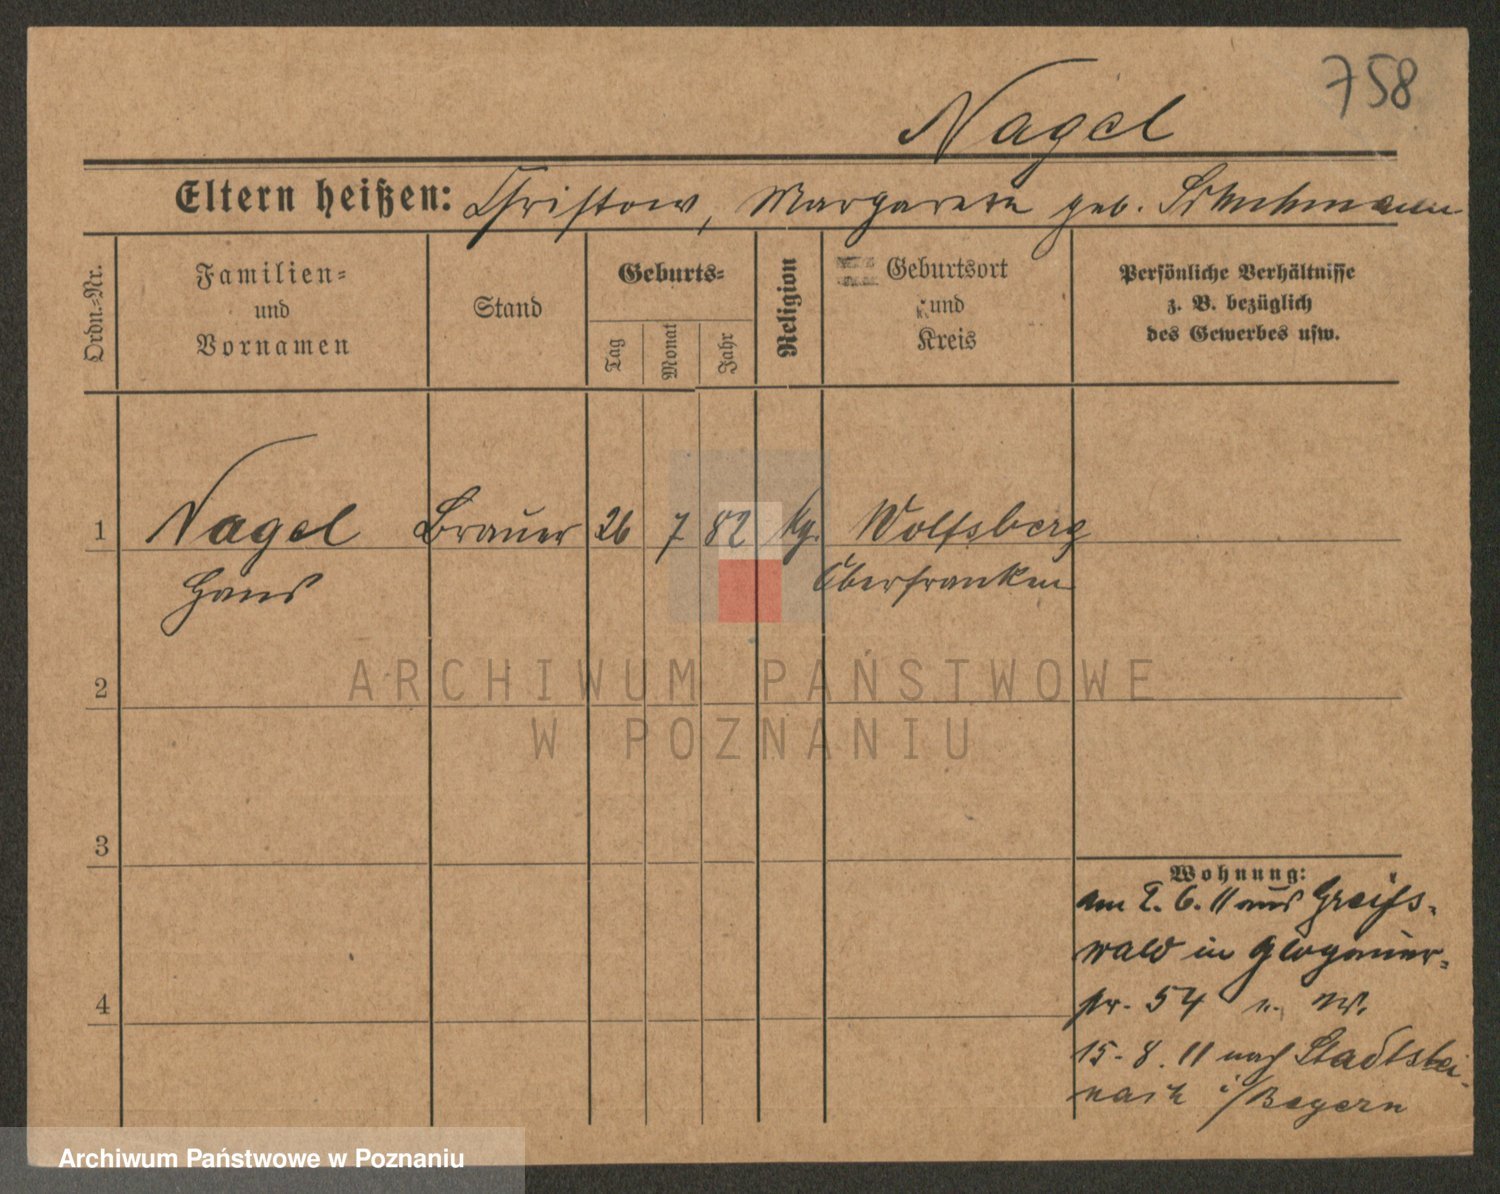 758
Nagel
Eltern heißen: Christow, Margareta geb.
Ordn.-Nr.
Familien-
und
Vornamen
Stand
Geburts-
Tag
Monat
Jahr
Religion
Geburtsort
und
Kreis
Persönliche Verhältnisse
z. B. bezüglich
des Gewerbes usw.
1 Nagel Brauer 26 7 82 Wolfsberg
Hans Oberfranken
2
3
4
Wohnung:
am 2. 6. 11 aus Greifs-
wald in Glogauer-
str. 54
15. 8. 11 nach Stadtstei-
nach i/Bayern
ARCHIWUM PAŃSTWOWE
W POZNANIU
Archiwum Państwowe w Poznaniu